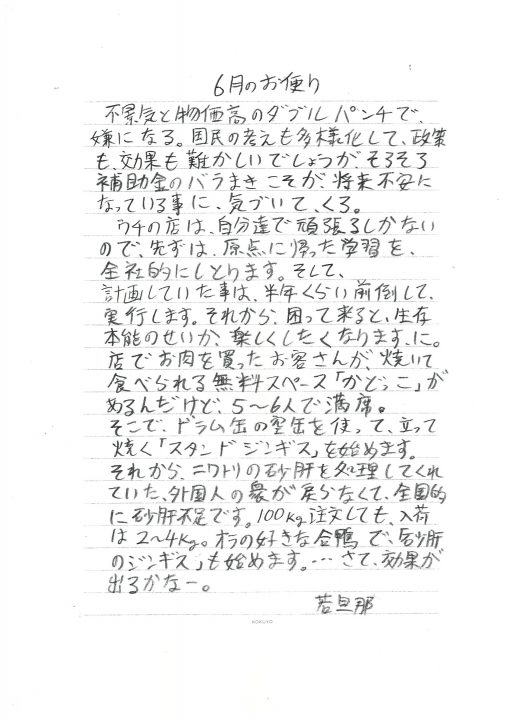 6月のお便り
不景気と物価高のダブルパンチで、
嫌になる。国民の考えも多様化して、政策
も、効果も難かしいでしょうが、そろそろ
補助金のバラまきこそが、将来不安に
なっている事に、気づいて、くろ。
ウチの店は、自分達で頑張るしかない
ので、先ずは、原点に帰った学習を、
全社的にしとります。そして、
計画していた事は、半年くらい前倒して、
実行します。それから、困って来ると、生存
本能のせいか、楽しくしたくなります、に。
店でお肉を買ったお客さんが、焼いて
食べられる無料スペース「かどっこ」が
あるんだけど、5〜6人で満席。
そこで、ドラム缶の空缶を使って、立って
焼く「スタンドジンギス」を始めます。
それから、ニワトリの砂肝を処理してくれ
ていた、外国人の衆が戻らなくて、全国的
に砂肝不足です。100kg注文しても、入荷
は2〜4kg。オラの好きな合鴨で、「砂肝
のジンギス」も始めます。…さて、効果が
出るかなー。
若旦那
KOKUYO